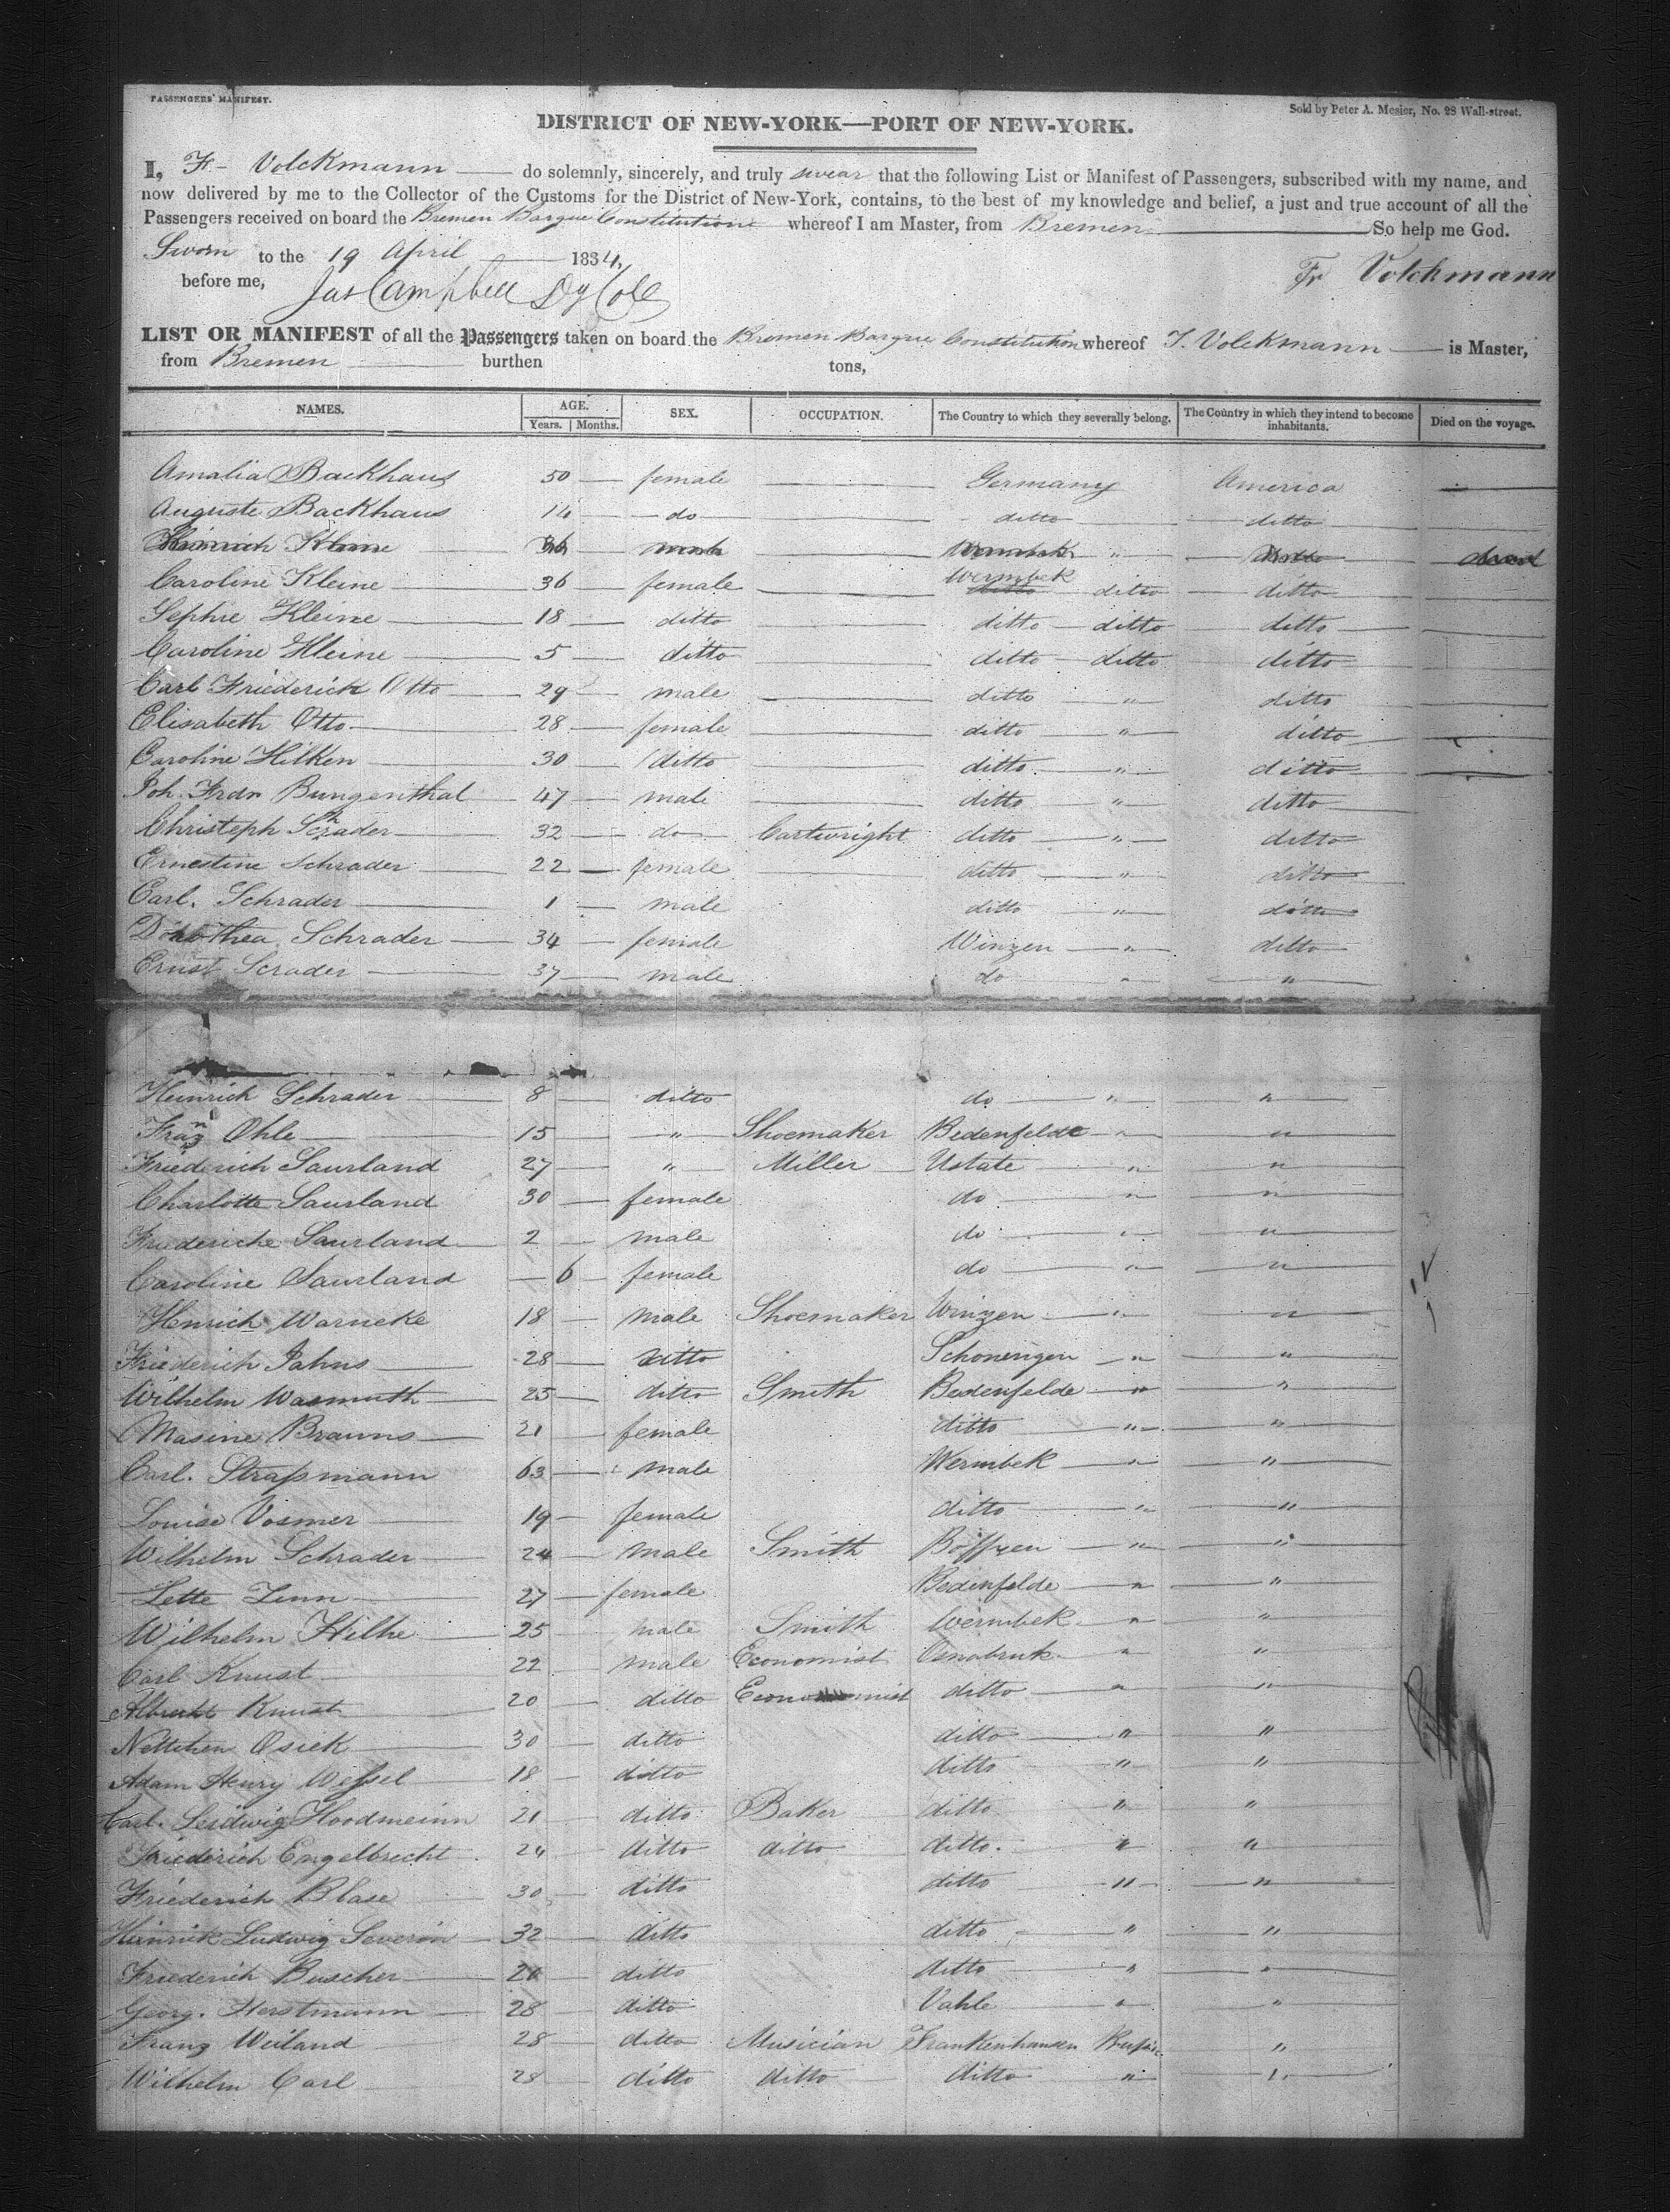 PASSENGERS' MANIFEST.
Sold by Peter A. Mesier, No. 28 Wall-street.
DISTRICT OF NEW-YORK—PORT OF NEW-YORK.
I, F- Volckmann do solemnly, sincerely, and truly swear that the following List or Manifest of Passengers, subscribed with my name, and
now delivered by me to the Collector of the Customs for the District of New-York, contains, to the best of my knowledge and belief, a just and true account of all the
Passengers received on board the Bremen Barque Constitution whereof I am Master, from Bremen So help me God.
Sworn to the 19 April 1834, Fr Volckmann
before me, Jas Campbell Dy Col
LIST OR MANIFEST of all the Passengers taken on board the Bremen Barque Constitution whereof F. Volckmann is Master,
from Bremen burthen tons,
NAMES. AGE. SEX. OCCUPATION. The Country to which they severally belong. The Country in which they intend to become inhabitants. Died on the voyage.
Years. Months.
Amalia Backhaus 50 — female Germany America
Auguste Backhaus 14 — do ditto ditto
Heinrich Kleine 36 " dead
Caroline Kleine 36 — female Wermbek ditto ditto
Sephie Kleine 18 — ditto ditto ditto ditto
Caroline Kleine 5 — ditto ditto ditto ditto
Carl Friederich Otto 29 — male ditto " ditto
Elisabeth Otto 28 — female ditto " ditto
Caroline Hilken 30 — ditto ditto " ditto
Joh. Frdr Bungenthal 47 — male ditto " ditto
Christoph Schrader 32 — do Cartwright ditto " ditto
Ernestine Schrader 22 — female ditto " ditto
Carl. Schrader 1 — male ditto " ditto
Dorothea Schrader 34 — female Winzen " ditto
Ernst Scrader 37 — male do " "
Heinrich Schrader 8 — ditto do " "
Franz Ohle 15 — " Shoemaker Bedenfelde " "
Friederich Saurland 27 — " Miller Ustate " "
Charlotte Saurland 30 — female do " "
Friederiche Saurland 2 — male do " "
Caroline Saurland — 6 — female do " "
Henrich Warneke 18 — male Shoemaker Winzen " "
Friederich Jahns 28 — ditto Schoningen " "
Wilhelm Wasmuth 25 — ditto Smith Bedenfelde " "
Masine Brauns 21 — female ditto " "
Carl. Straßmann 63 — male Wermbek " "
Louise Vosmer 19 — female ditto " "
Wilhelm Schrader 24 — male Smith Böffzen " "
Lette Zinn 27 — female Bedenfelde " "
Wilhelm Hilke 25 male Smith Wermbek " "
Carl Knust 22 — male Economist Osnabruk " "
Albrecht Knust 20 — ditto Economist ditto " "
Nettchen Osiek 30 — ditto ditto " "
Adam Henry Wessel 18 — ditto ditto " "
Carl. Ludwig Hoodmeinn 21 — ditto Baker ditto " "
Friederich Engelbrecht 24 — ditto ditto ditto. " "
Friederich Blase 30 — ditto ditto " "
Heinrich Ludwig Severin 32 — ditto ditto " "
Friederich Buscher ditto ditto " "
Georg. Herstmann 28 — ditto Vahle " "
Franz Weiland 28 — ditto Musician Frankenhausen "
Wilhelm Carl 28 — ditto ditto ditto " "